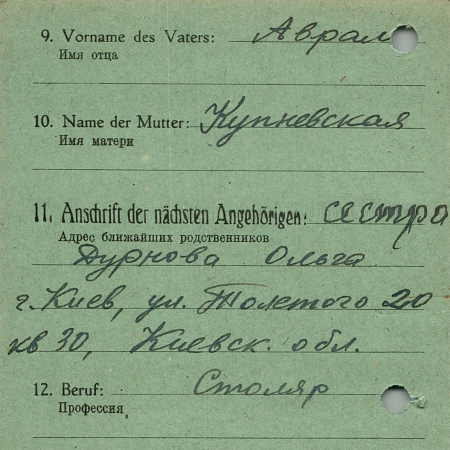 9. Vorname des Vaters: Аврам
Имя отца
10. Name der Mutter: Купневская
Имя матери
11. Anschrift der nächsten Angehörigen: сестра
Адрес ближайших родственников
Дурнова Ольга
г. Киев, ул. Толстого 20
кв 30, Киевск. обл.
12. Beruf: Столяр
Профессия